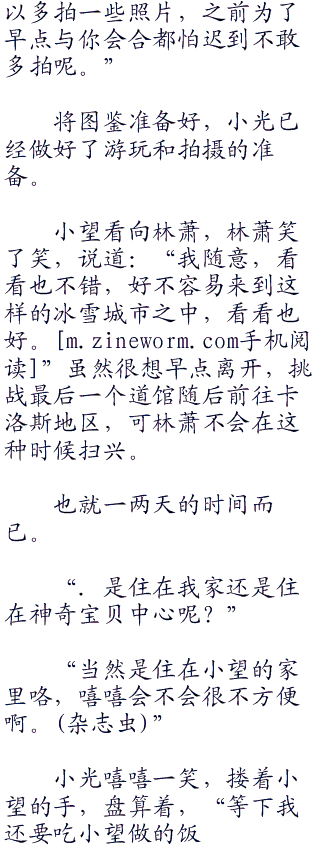 以多拍一些照片，之前为了
早点与你会合都怕迟到不敢
多拍呢。”
将图鉴准备好，小光已
经做好了游玩和拍摄的准
备。
小望看向林萧，林萧笑
了笑，说道：“我随意，看
看也不错，好不容易来到这
样的冰雪城市之中，看看也
好。[m.zineworm.com手机阅
读]”虽然很想早点离开，挑
战最后一个道馆随后前往卡
洛斯地区，可林萧不会在这
种时候扫兴。
也就一两天的时间而
已。
“．是住在我家还是住
在神奇宝贝中心呢？”
“当然是住在小望的家
里咯，嘻嘻会不会很不方便
啊。(杂志虫)”
小光嘻嘻一笑，搂着小
望的手，盘算着，“等下我
还要吃小望做的饭